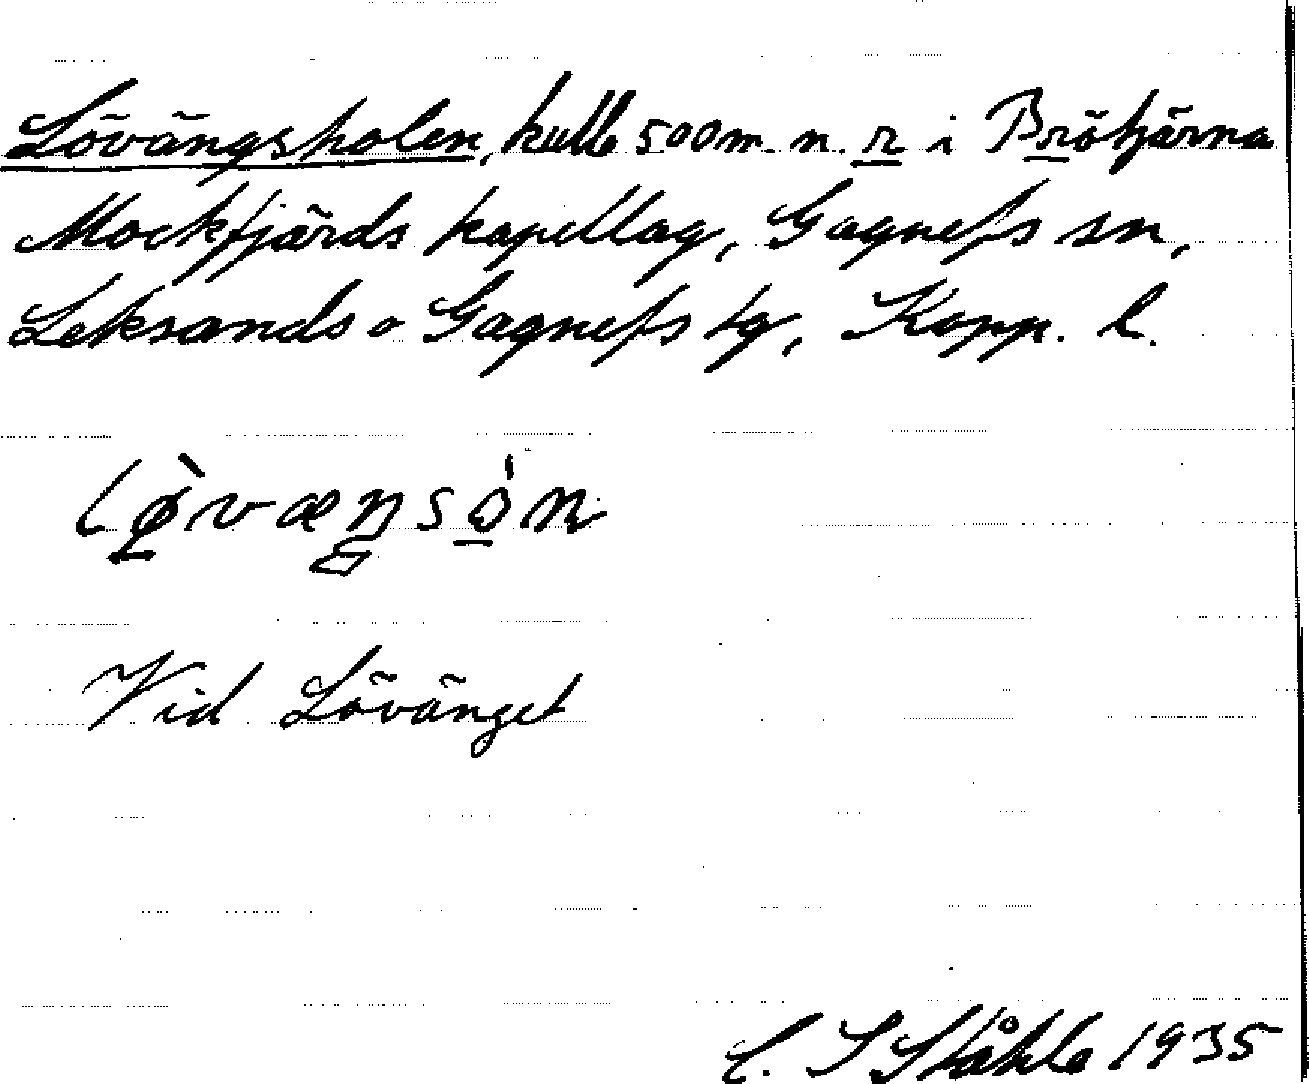 Lövängsholen, kulle 500 m. n. r i Bröhjärna
Mockfjärds kapellag, Gagnefs sn,
Leksands o Gagnefs tg, Kopp. l.
lø̀væŋsòn
Vid Lövänget
C. I Ståhle 1935